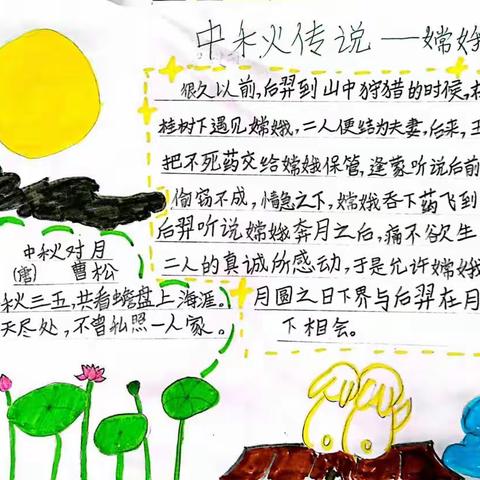 中秋传说——嫦娥
很久以前，后羿到山中狩猎的时候，在
桂树下遇见嫦娥，二人便结为夫妻，后来，王
把不死药交给嫦娥保管，逢蒙听说后前
偷窃不成，情急之下，嫦娥吞下药飞到
后羿听说嫦娥奔月之后，痛不欲生
二人的真诚所感动，于是允许嫦娥
月圆之日下界与后羿在月
下相会。
中秋对月
（唐）曹松
秋三五，共看蟾盘上海涯。
天尽处，不曾私照一人家。